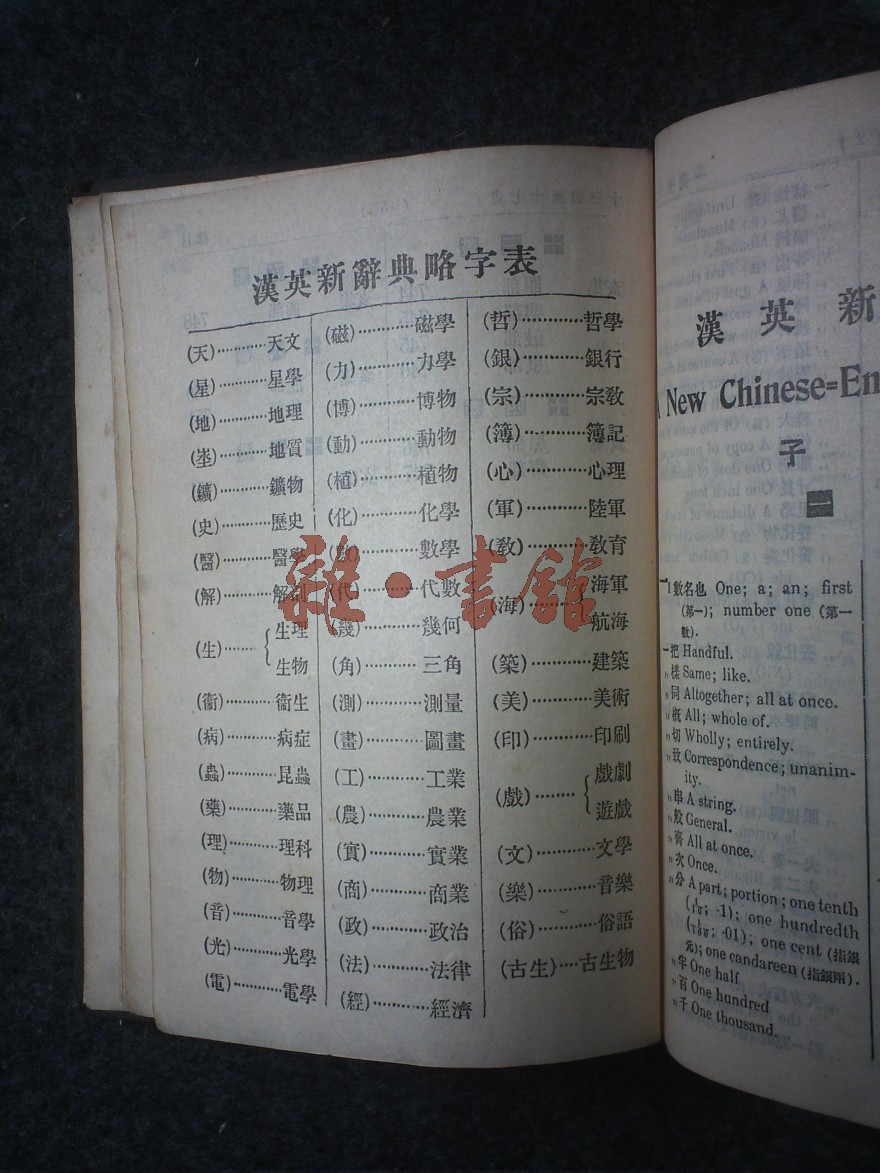 漢英新辭典略字表
(天)⋯⋯⋯⋯天文
(星)⋯⋯⋯⋯星學
(地)⋯⋯⋯⋯地理
(埊)⋯⋯⋯⋯地質
(鑛)⋯⋯⋯⋯鑛物
(史)⋯⋯⋯⋯歷史
(醫)⋯⋯⋯⋯醫學
(解)⋯⋯⋯⋯解剖
(生)⋯⋯{生理
生物
(衞)⋯⋯⋯⋯衞生
(病)⋯⋯⋯⋯病症
(蟲)⋯⋯⋯⋯昆蟲
(藥)⋯⋯⋯⋯藥品
(理)⋯⋯⋯⋯理科
(物)⋯⋯⋯⋯物理
(音)⋯⋯⋯⋯音學
(光)⋯⋯⋯⋯光學
(電)⋯⋯⋯⋯電學
(磁)⋯⋯⋯⋯磁學
(力)⋯⋯⋯⋯力學
(博)⋯⋯⋯⋯博物
(動)⋯⋯⋯⋯動物
(植)⋯⋯⋯⋯植物
(化)⋯⋯⋯⋯化學
(數)⋯⋯⋯⋯數學
(代)⋯⋯⋯⋯代數
(幾)⋯⋯⋯⋯幾何
(角)⋯⋯⋯⋯三角
(測)⋯⋯⋯⋯測量
(畫)⋯⋯⋯⋯圖畫
(工)⋯⋯⋯⋯工業
(農)⋯⋯⋯⋯農業
(實)⋯⋯⋯⋯實業
(商)⋯⋯⋯⋯商業
(政)⋯⋯⋯⋯政治
(法)⋯⋯⋯⋯法律
(經)⋯⋯⋯⋯經濟
(哲)⋯⋯⋯⋯哲學
(銀)⋯⋯⋯⋯銀行
(宗)⋯⋯⋯⋯宗敎
(簿)⋯⋯⋯⋯簿記
(心)⋯⋯⋯⋯心理
(軍)⋯⋯⋯⋯陸軍
(敎)⋯⋯⋯⋯敎育
(海)⋯⋯⋯{海軍
航海
(築)⋯⋯⋯⋯建築
(美)⋯⋯⋯⋯美術
(印)⋯⋯⋯⋯印刷
(戲)⋯⋯⋯{戲劇
遊戲
(文)⋯⋯⋯⋯文學
(樂)⋯⋯⋯⋯音樂
(俗)⋯⋯⋯⋯俗語
(古生)⋯⋯古生物
雜·書館
漢英新
New Chinese=En
子
一
一 數名也 One; a; an; first
(第一); number one (第一
數).
一把 Handful.
〃樣 Same; like.
〃同 Altogether; all at once.
〃概 All; whole of.
〃切 Wholly; entirely.
〃致 Correspondence; unanim-
ity.
〃串 A string.
〃般 General.
〃齊 All at once.
〃次 Once.
〃分 A part; portion; one tenth
(1/10; ·1); one hundredth
(1/100; ·01); one cent (指銀
元); one candareen (指銀兩).
〃半 One half
〃百 One hundred
〃千 One thousand.